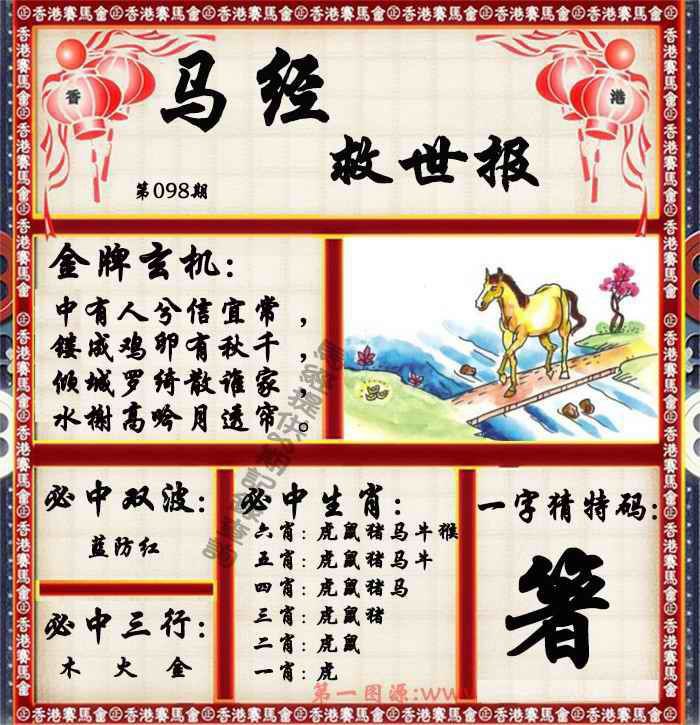 香港賽馬會㊣香港賽馬會㊣香港賽馬會㊣香港賽馬會㊣香港賽馬會㊣香港賽馬會
香
港
马经
救世报
第098期
金牌玄机：
中有人兮信宜常，
镂成鸡卵有秋千，
倾城罗绮散谁家，
水榭高吟月透帘。
必中双波：
蓝防红
必中三行：
木 火 金
必中生肖：
六肖：虎鼠猪马牛猴
五肖：虎鼠猪马牛
四肖：虎鼠猪马
三肖：虎鼠猪
二肖：虎鼠
一肖：虎
一字猜特码：
箸
第一图源:www